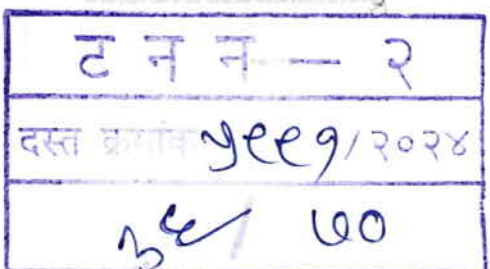 ट न न — २
दस्त क्रमांक ५९९१/२०२४
३६/ ७०